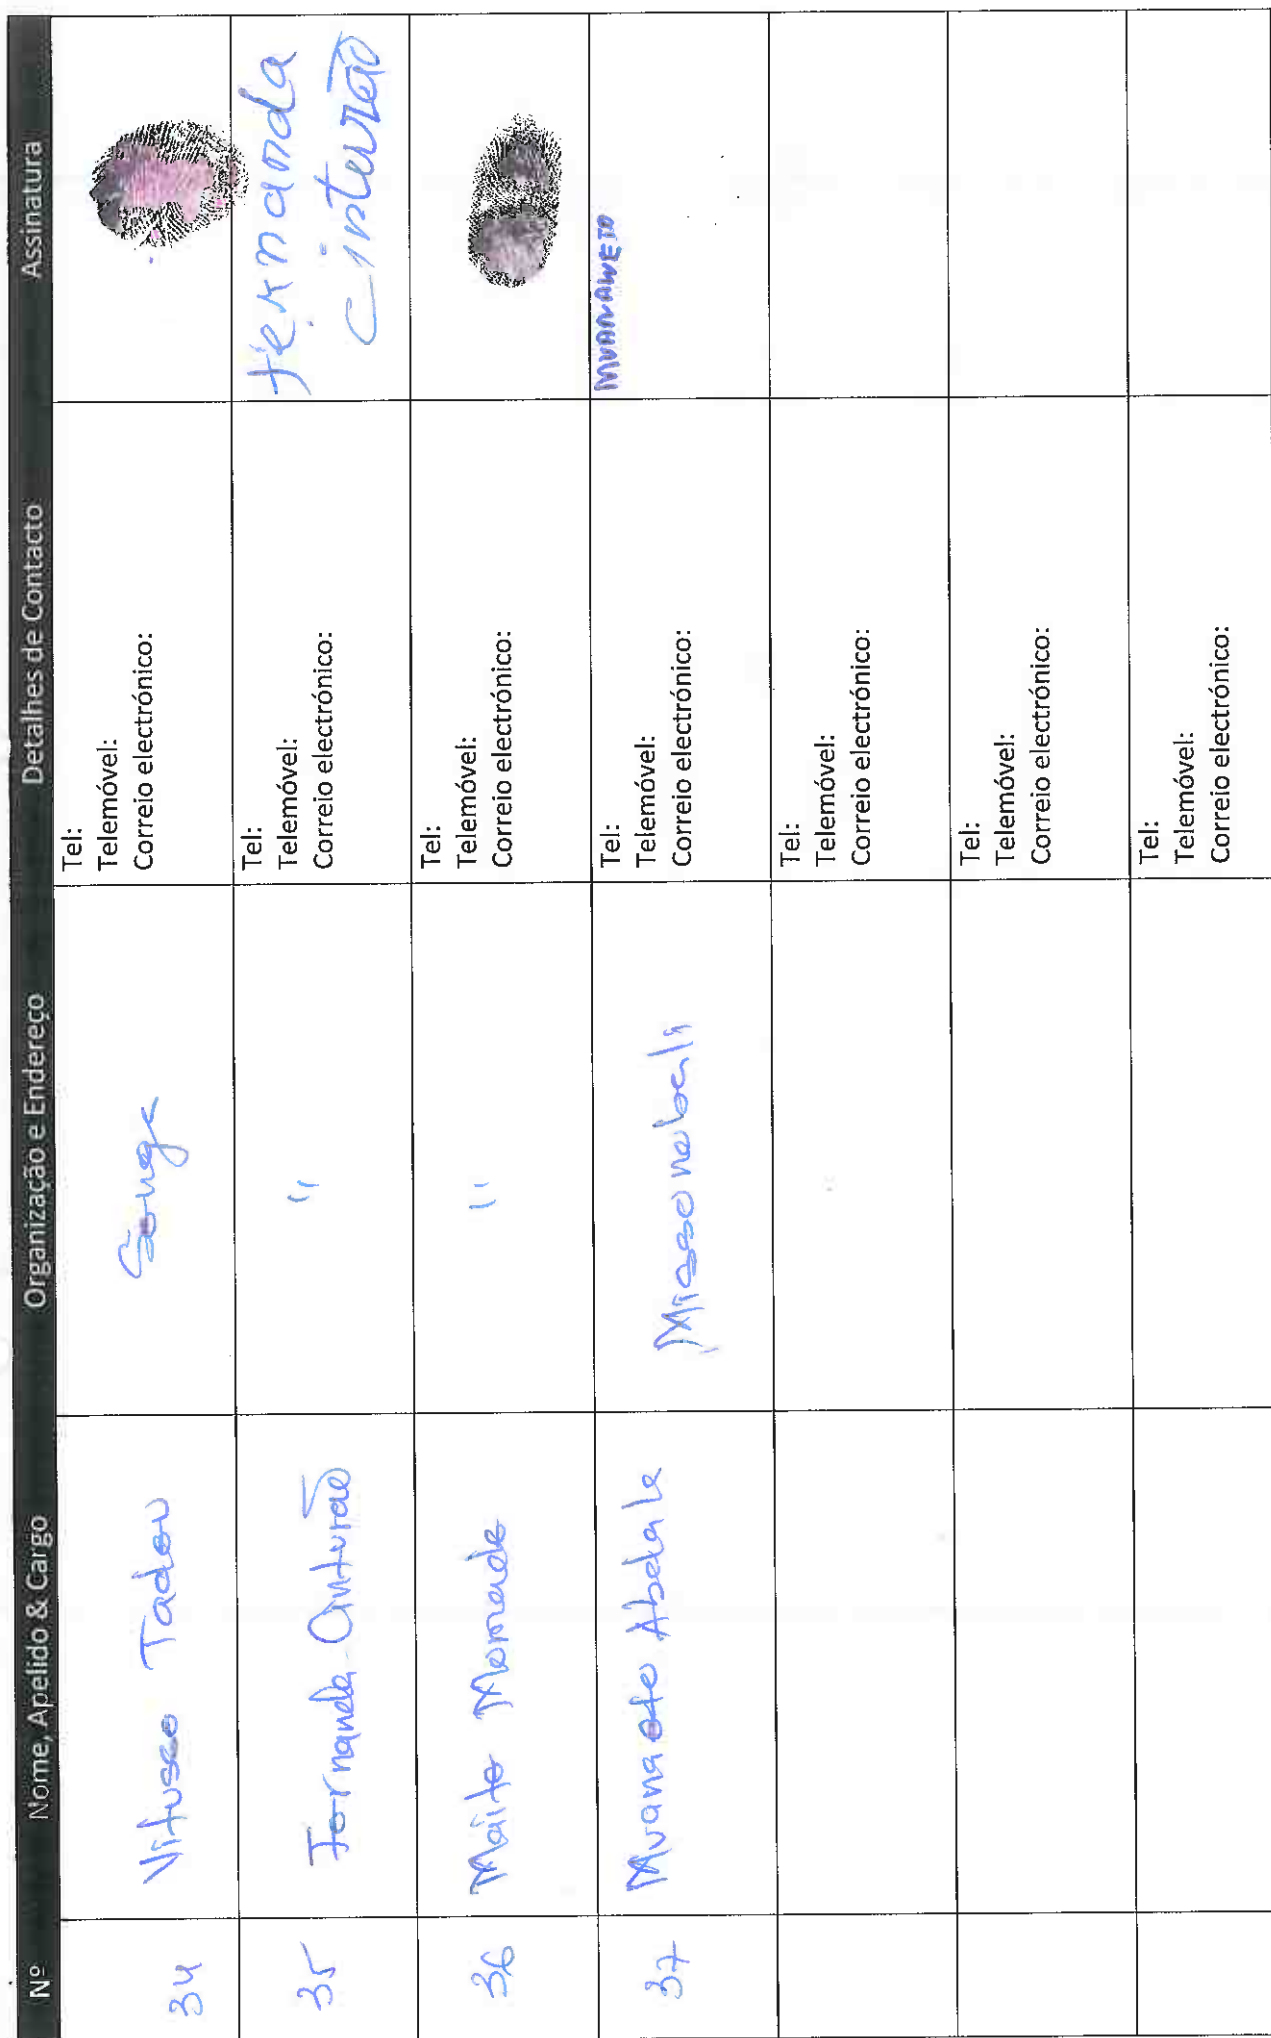 Nº Nome, Apelido & Cargo Organização e Endereço Detalhes de Contacto Assinatura
34 Vitusso Tadeu Senga Tel:
Telemóvel:
Correio electrónico:
35 Fernanda Cinturão " Tel: Fernanda
Telemóvel: Cinturão
Correio electrónico:
36 Momade " Tel:
Telemóvel:
Correio electrónico:
37 Abdala Tel:
Telemóvel:
Correio electrónico:
Tel:
Telemóvel:
Correio electrónico:
Tel:
Telemóvel:
Correio electrónico:
Tel:
Telemóvel:
Correio electrónico: